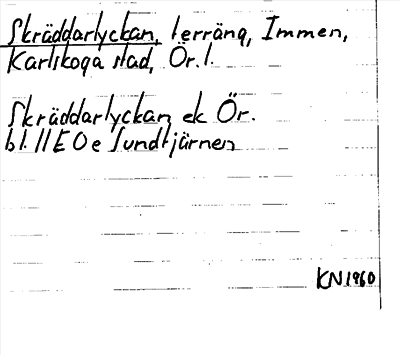 Skräddarlyckan, terräng, Immen,
Karlskoga stad, Ör. l.
Skräddarlyckan ek Ör.
bl. 11E 0e Sundtjärnen
KN 1960